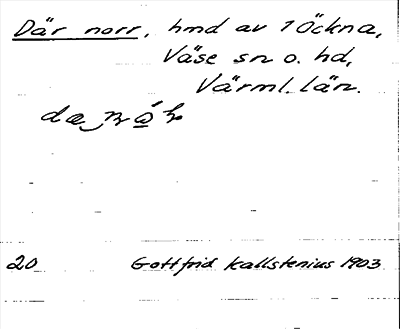 Där norr, hmd av 1 Öckna,
Väse sn o. hd,
Värml. län.
20 Gottfrid Kallstenius 1903